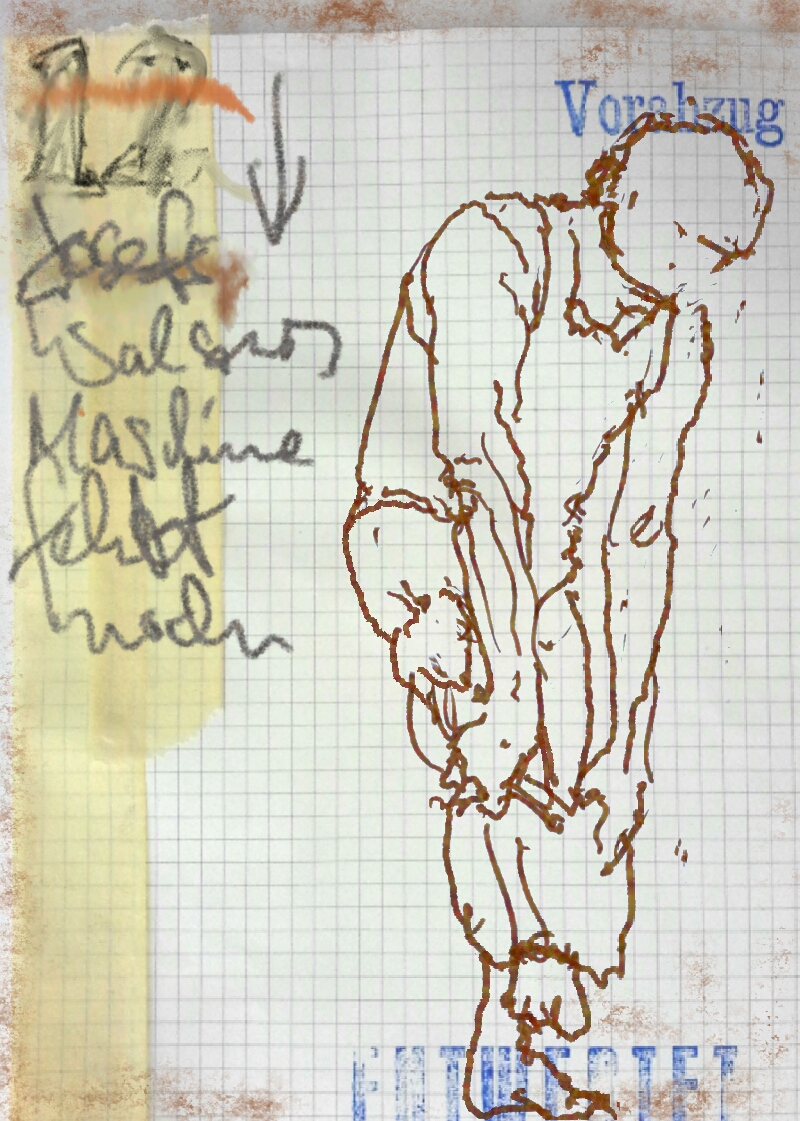 12
Vorabzug
Josefs
Maschine
fehlt
noch
ENTWERTET